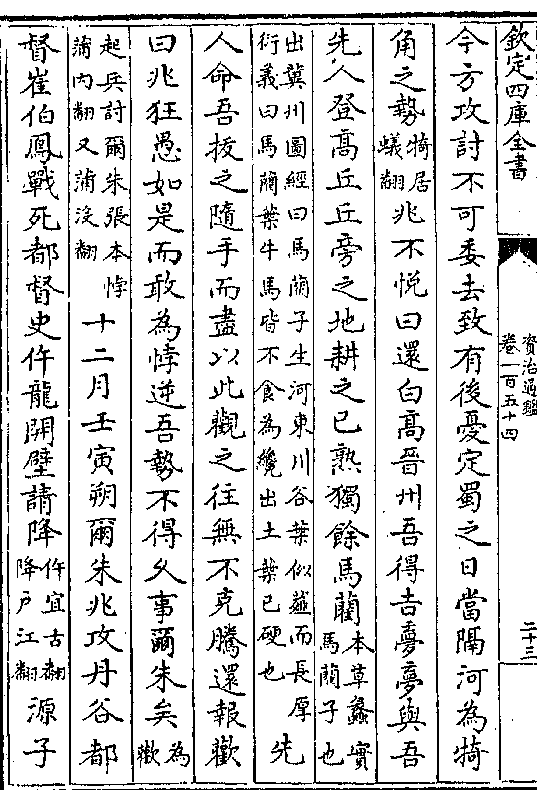 欽定四庫全書
資治通鑑
卷一百五十四
二十三
今方攻討不可委去致有後憂定蜀之日當隔河為犄
角之勢犄居蟻翻兆不悅曰還白高晉州吾得吉夢夢與吾
先人登高丘丘旁之地耕之已熟獨餘馬藺本草蠡實馬藺子也
出冀州圖經曰馬藺子生河東川谷葉似薤而長厚衍義曰馬藺葉牛馬皆不食為纔出土葉已硬也先
人命吾拔之隨手而盡以此觀之往無不克騰還報歡
曰兆狂愚如是而敢為悖逆吾勢不得久事爾朱矣為歡
起兵討爾朱張本悖蒲內翻又蒲沒翻十二月壬寅朔爾朱兆攻丹谷都
督崔伯鳳戰死都督史仵龍開壁請降仵宜古翻降戶江翻源子